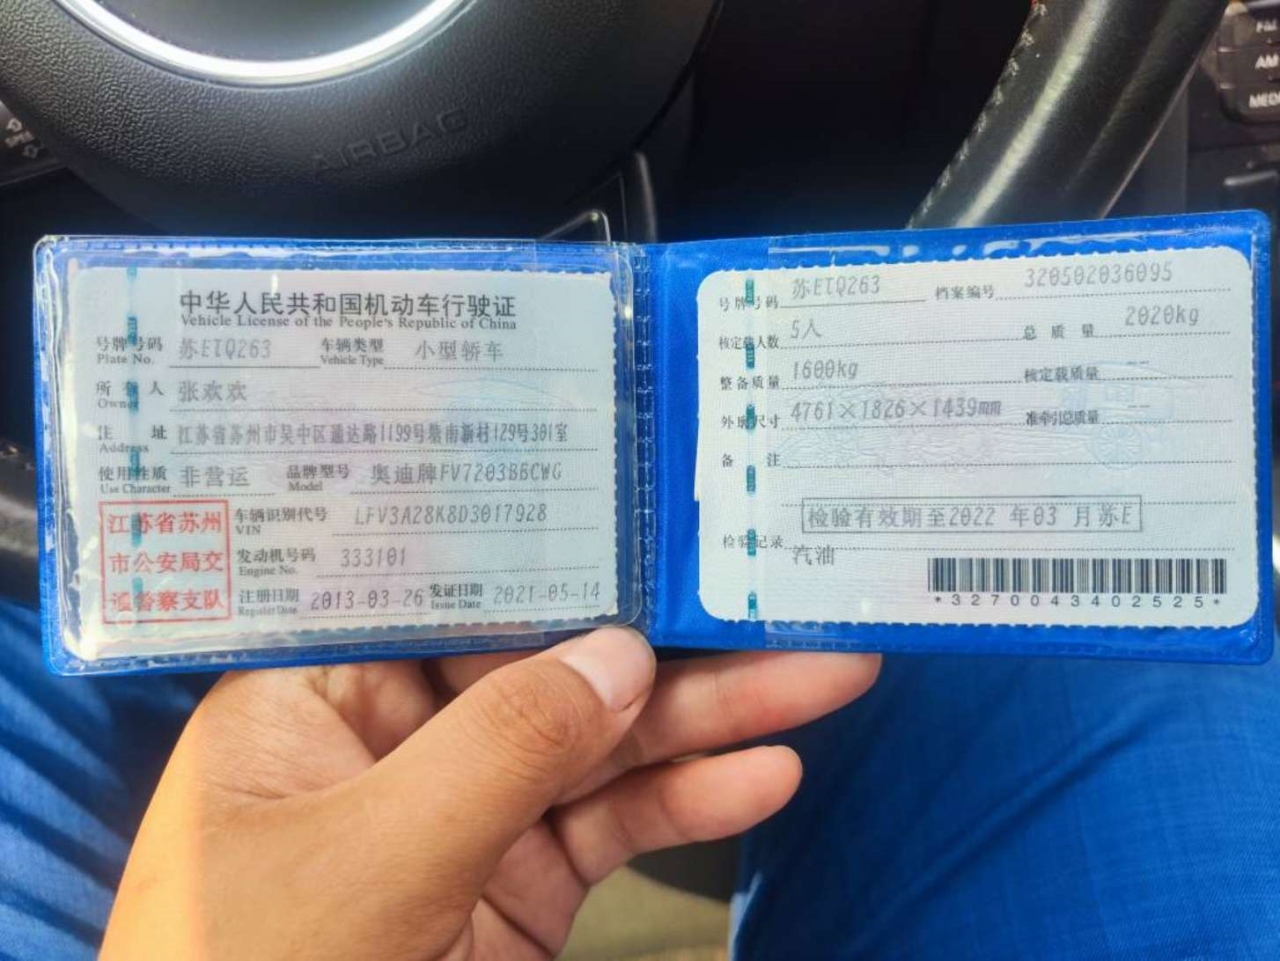 AIRBAG
AM
中华人民共和国机动车行驶证
Vehicle License of the People's Republic of China
号牌号码 苏E1Q263 车辆类型 小型轿车
Plate No. Vehicle Type
所有人 张欢欢
Owner
住址 江苏省苏州市吴中区通达路1199号塘南新村129号301室
Address
使用性质 非营运 品牌型号 奥迪牌FV7203B6CWG
Use Character Model
江苏省苏州
市公安局交
通警察支队
车辆识别代号 LFV3A28K8D3017928
VIN
发动机号码 333101
Engine No.
注册日期 2013-03-26 发证日期 2021-05-14
Register Date Issue Date
号牌号码 苏E1Q263 档案编号 320502036095
核定载人数 5人 总质量 2020kg
整备质量 1600kg 核定载质量 --
外廓尺寸 4761×1826×1439mm 准牵引总质量 --
备注
检验有效期至2022 年03 月苏E
检验记录
汽油
*3270043402525*